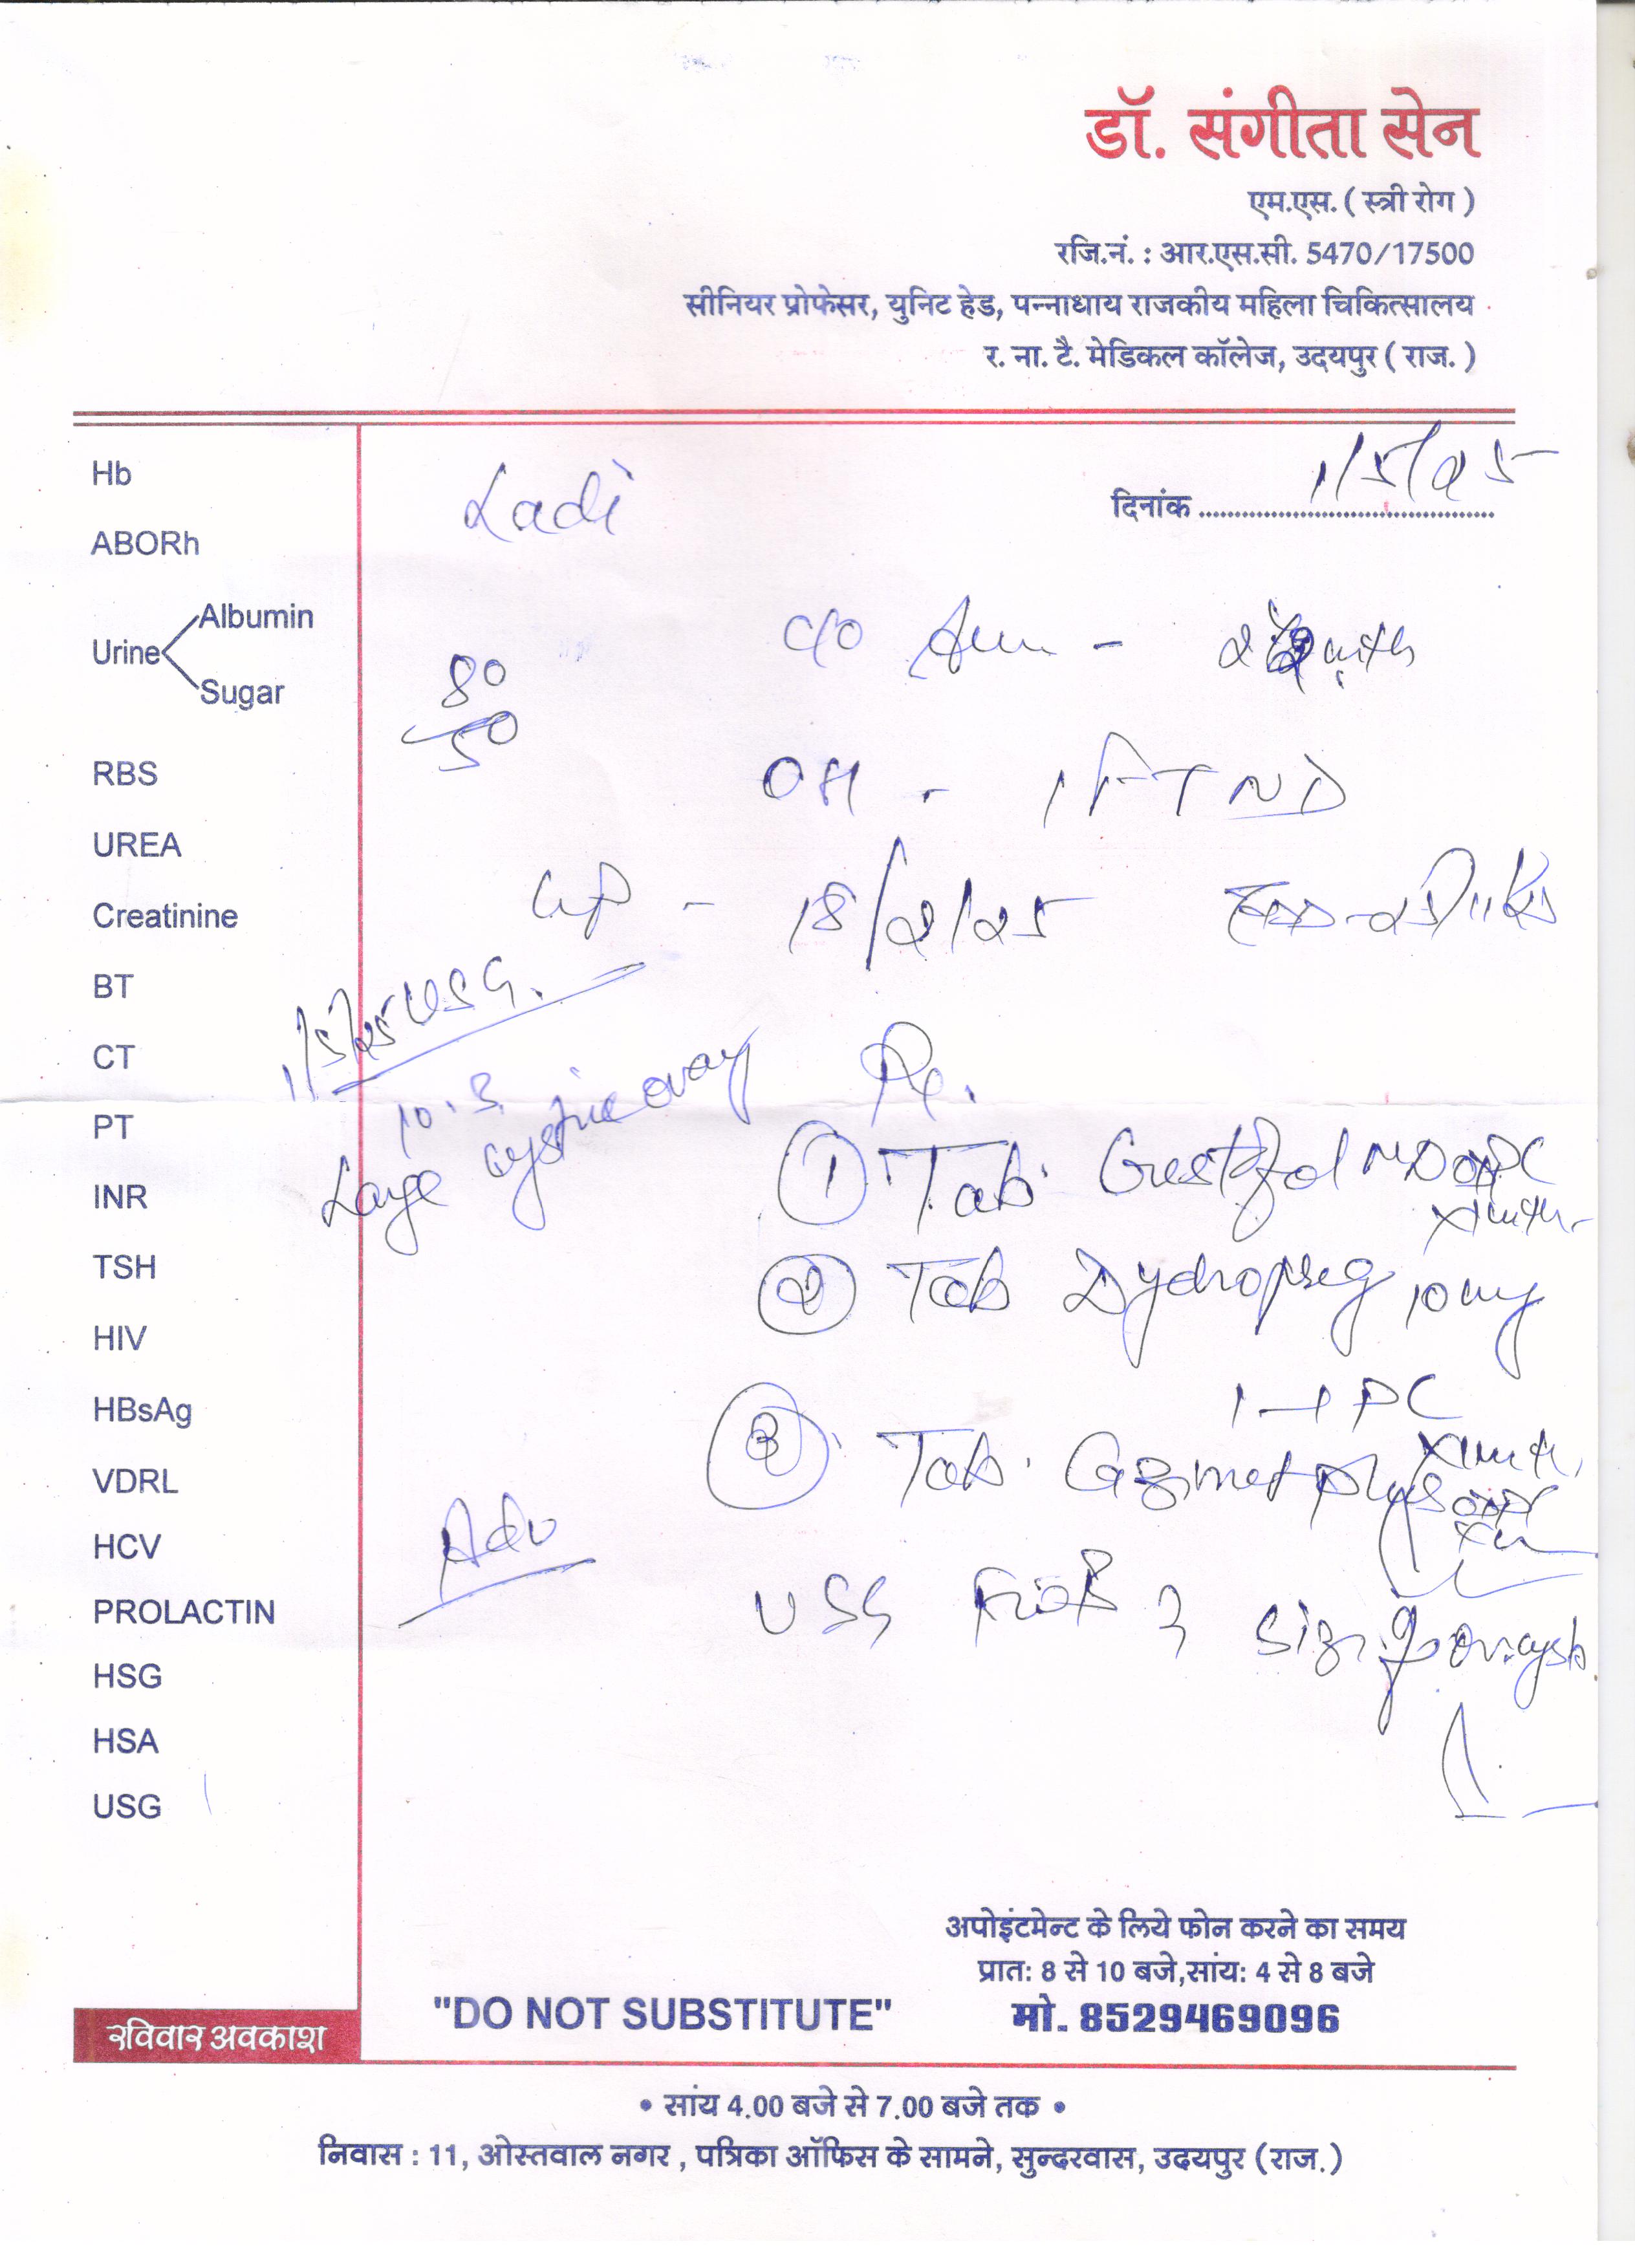 डॉ. संगीता सेन
एम.एस. ( स्त्री रोग )
रजि.नं. : आर.एस.सी. 5470/17500
सीनियर प्रोफेसर, युनिट हेड, पन्नाधाय राजकीय महिला चिकित्सालय
र. ना. टै. मेडिकल कॉलेज, उदयपुर ( राज. )
दिनांक 1/5/25
Ladi
Hb
ABORh
Urine Albumin
Sugar
RBS
UREA
Creatinine
BT
CT
PT
INR
TSH
HIV
HBsAg
VDRL
HCV
PROLACTIN
HSG
HSA
USG
80
50
C/O
OH - 1 FTND
LMP - 18/2/25
1/5/25 USG.
Large cystic ovary
Rx.
① Tab.
② Tab Dydropreg 10 mg
1-1 PC
③ Tab.
Adv
USG size of ov. cyst
अपोइंटमेन्ट के लिये फोन करने का समय
प्रात: 8 से 10 बजे,सांय: 4 से 8 बजे
मो. 8529469096
"DO NOT SUBSTITUTE"
रविवार अवकाश
• सांय 4.00 बजे से 7.00 बजे तक •
निवास : 11, ओस्तवाल नगर , पत्रिका ऑफिस के सामने, सुन्दरवास, उदयपुर (राज.)